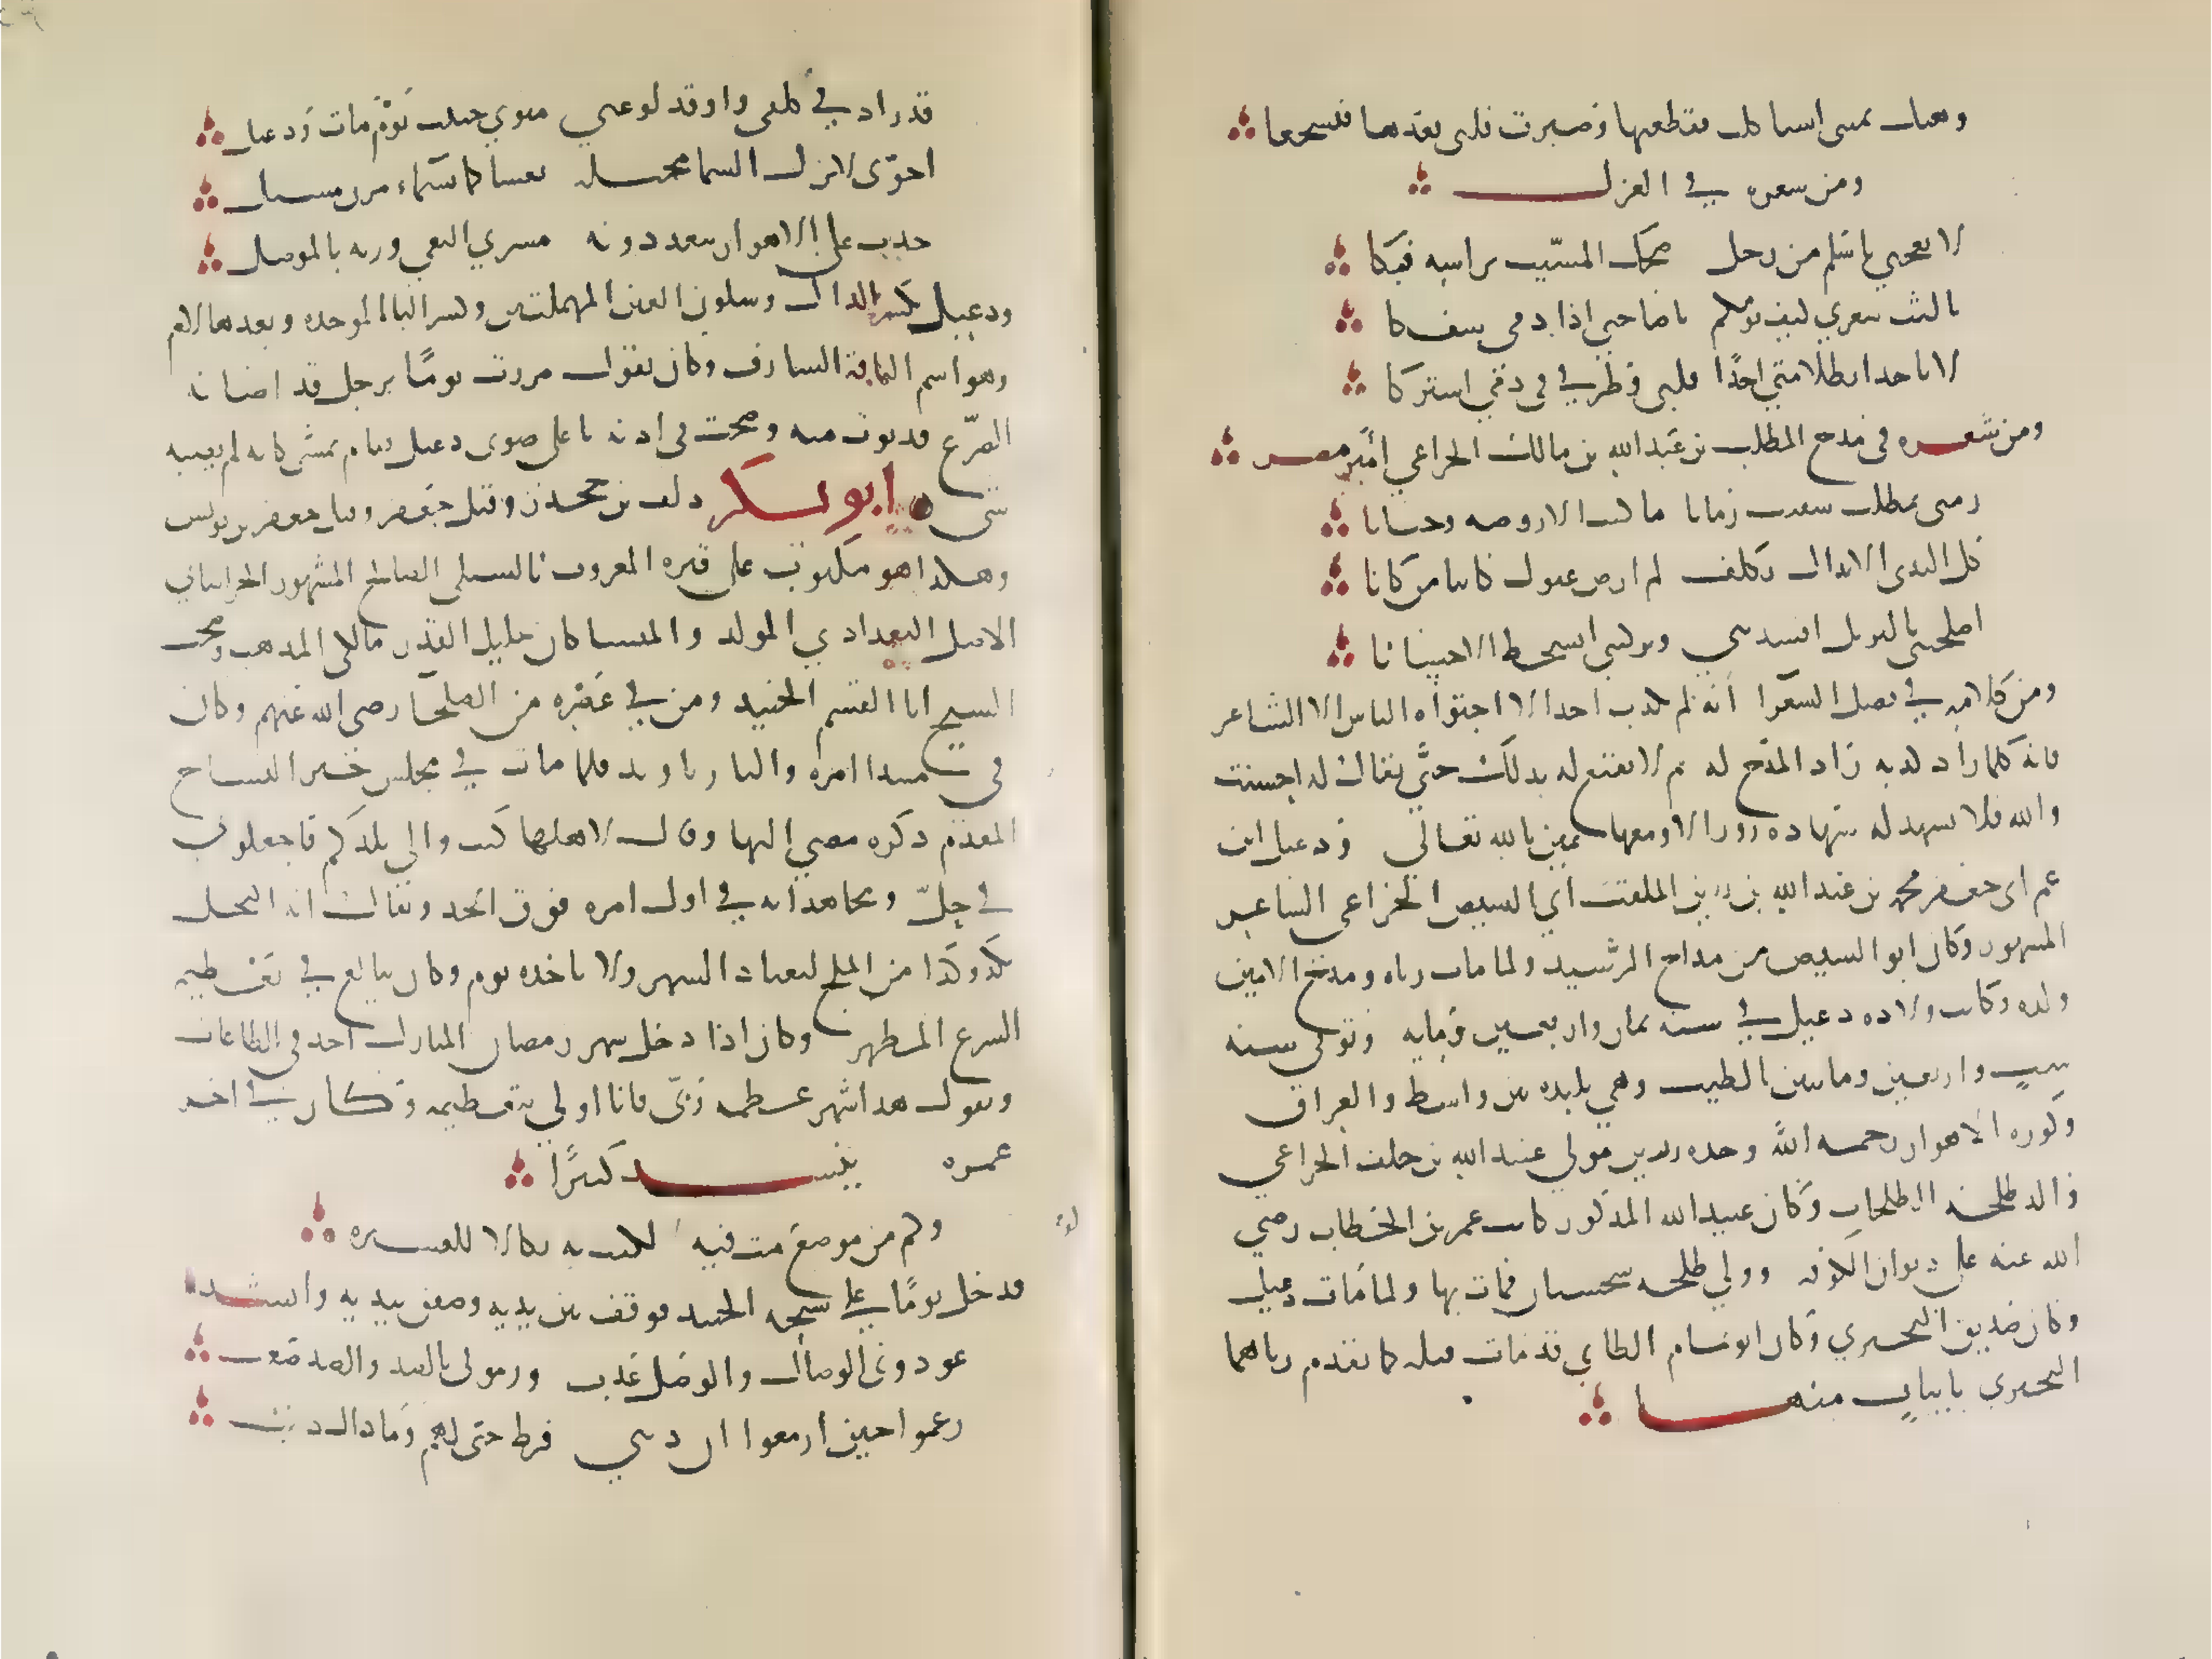 وهبك يميني استاكلت فقطعتها وصبرت قلبي بعدها فتشجعا
ومن شعره في الغزل
لا تعجبي يا سلم من رجل ضحك المشيب براسه فبكا
يا ليت شعري كيف نومكما يا صاحبي اذا دمي سفكا
لا تاخدا بظلامتي احدًا قلبي وطرفي في دمي اشتركا
ومن شعره في مدح المطلب بن عبد الله بن مالك الخزاعي أمير مصر
زمني بمطلب سقيت زمانا ما كنت الا روضه وجنانا
كل الندى الا نداك تكلف لم ارض غيرك كاينا من كانا
اصلحتني بالبر بل افسدتني وتركتني اتسخط الاحسانا
ومن كلامه في فضل الشعرا أنه لم يكذب احد الا اجتواه الناس الا الشاعر
فانه كلما زاد كذبه زاد المدح له ثم لا يقنع له بذلك حتَّى يقال له احسنت
والله فلا يشهد له شهاده زور الا ومعها يمين بالله تعالى ودعبل ابن
عم ابي جعفر محمد بن عبد الله بن رزين الملقب ابي الشيص الخزاعي الشاعر
المشهور وكان ابو الشيص من مداح الرشيد ولما مات رثاه ومدح الامين
ولده وكانت ولاده دعبل في سنه ثمان واربعين ومايه وتوفي سنه
ست واربعين ومايتين بالطيب وهي بليده بين واسط والعراق
وكوره الاهواز رحمه الله وجده رزين مولى عبد الله بن خلف الخزاعي
والد طلحه الطلحات وكان عبيد الله المذكور كاتب عمر بن الخطاب رضي
الله عنه على ديوان الكوفه وولي طلحه سجستان فمات بها ولما مات دعبل
وكان صديق البحتري وكان ابو تمام الطاي قد مات قبله كما تقدم رثاهما
البحتري بابيات منها
قد زاد في كلفي واوقد لوعتي مثوي حبيب يوم مات ودعبل
اخوّي لا تزل السما مخيله تغشاكما بسماء مزن مسبل
جدث على الاهواز يبعد دونه مسري النعي ورمه بالموصل
ودعبل بكسر الدال وسكون العين المهملتين وكسر البا الموحده وبعدها لام
وهو اسم الناقة الشارف وكان يقول مررت يومًا برجل قد اصابه
الصرع فدنوت منه وصحت في اذنه باعلى صوتي دعبل فقام يمشي كانه لم يصبه
شي ابو بكر دلف بن جحدر وقيل جعفر وقيل جعفر بن يونس
وهكذا هو مكتوب على قبره المعروف بالشبلي الصالح المشهور الخراساني
الاصل البغدادي المولد والمنشا كان جليل القدر مالكي المذهب وصحب
الشيخ ابا القسم الجنيد ومن في عصره من الصلحا رضي الله عنهم وكان
في مبدا امره واليا بدنباوند فلما مات في مجلس خير النساج
المقدم ذكره مضي اليها وقال لاهلها كنت والي بلدكم فاجعلوني
في حِلّ ومجاهداته في اول امره فوق الحد ويقال انه اكتحل
بكذا وكذا من الملح ليعتاد السهر ولا ياخده نوم وكان يبالغ في تعظيم
الشرع المطهر وكان اذا دخل شهر رمضان المبارك اجد في الطاعات
ويقول هدا شهر عظمه ربّي فانا اولي بتعظيمه وكان في اخر
عمره ينشد كثيرًا
وكم من موضع مت فيه لكنت به نكالا للعشيره
ودخل يومًا على شيخه الجنيد فوقف بين يديه وصفق بيديه وانشد
عودوني الوصال والوصل عذب ورموني بالصد والصد صعب
زعموا حين ازمعوا ان ذنبي فرط حبي لهم وما ذاك ذنب